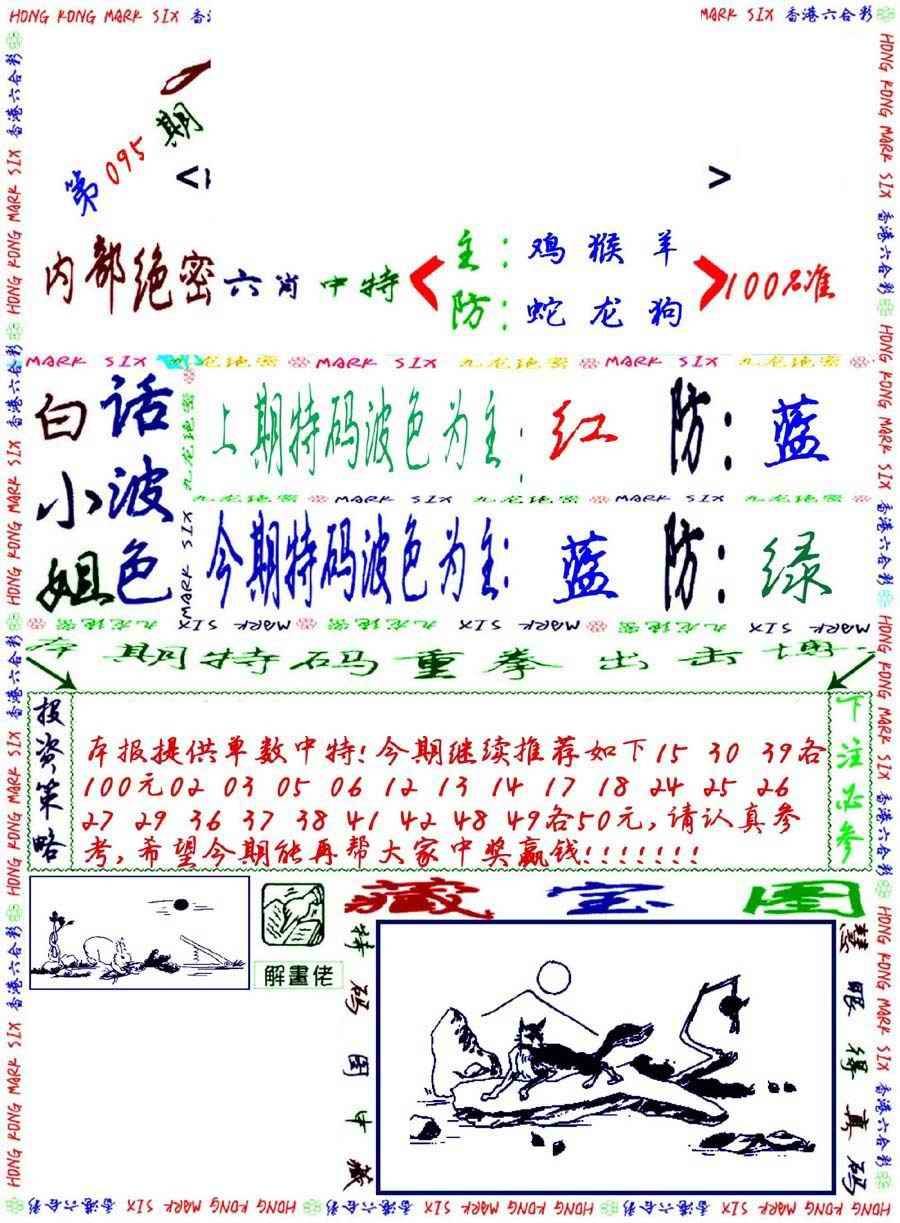 HONG KONG MARK SIX 香
MARK SIX 香港六合彩
第095期
< >
内部绝密六肖中特
主:鸡猴羊
防:蛇龙狗
100%准
MARK SIX 九龙绝密 MARK SIX 九龙绝密 MARK SIX 九龙绝密
白话
小波
姐色
上期特码波色为主:红 防:蓝
九龙绝密 MARK SIX 九龙绝密 MARK SIX
今期特码波色为主:蓝 防:绿
九龙绝密 MARK SIX 九龙绝密 MARK SIX 九龙绝密 MARK SIX
本期特码重拳出击
投资策略
本报提供单数中特!今期继续推荐如下15 30 39各
100元02 03 05 06 12 13 14 17 18 24 25 26
27 29 36 37 38 41 42 48 49各50元,请认真参
考,希望今期能再帮大家中奖赢钱!!!!!!!
下注必参
解畫佬
藏宝图
特码图中藏
慧眼得真码
HONG KONG MARK SIX 香港六合彩